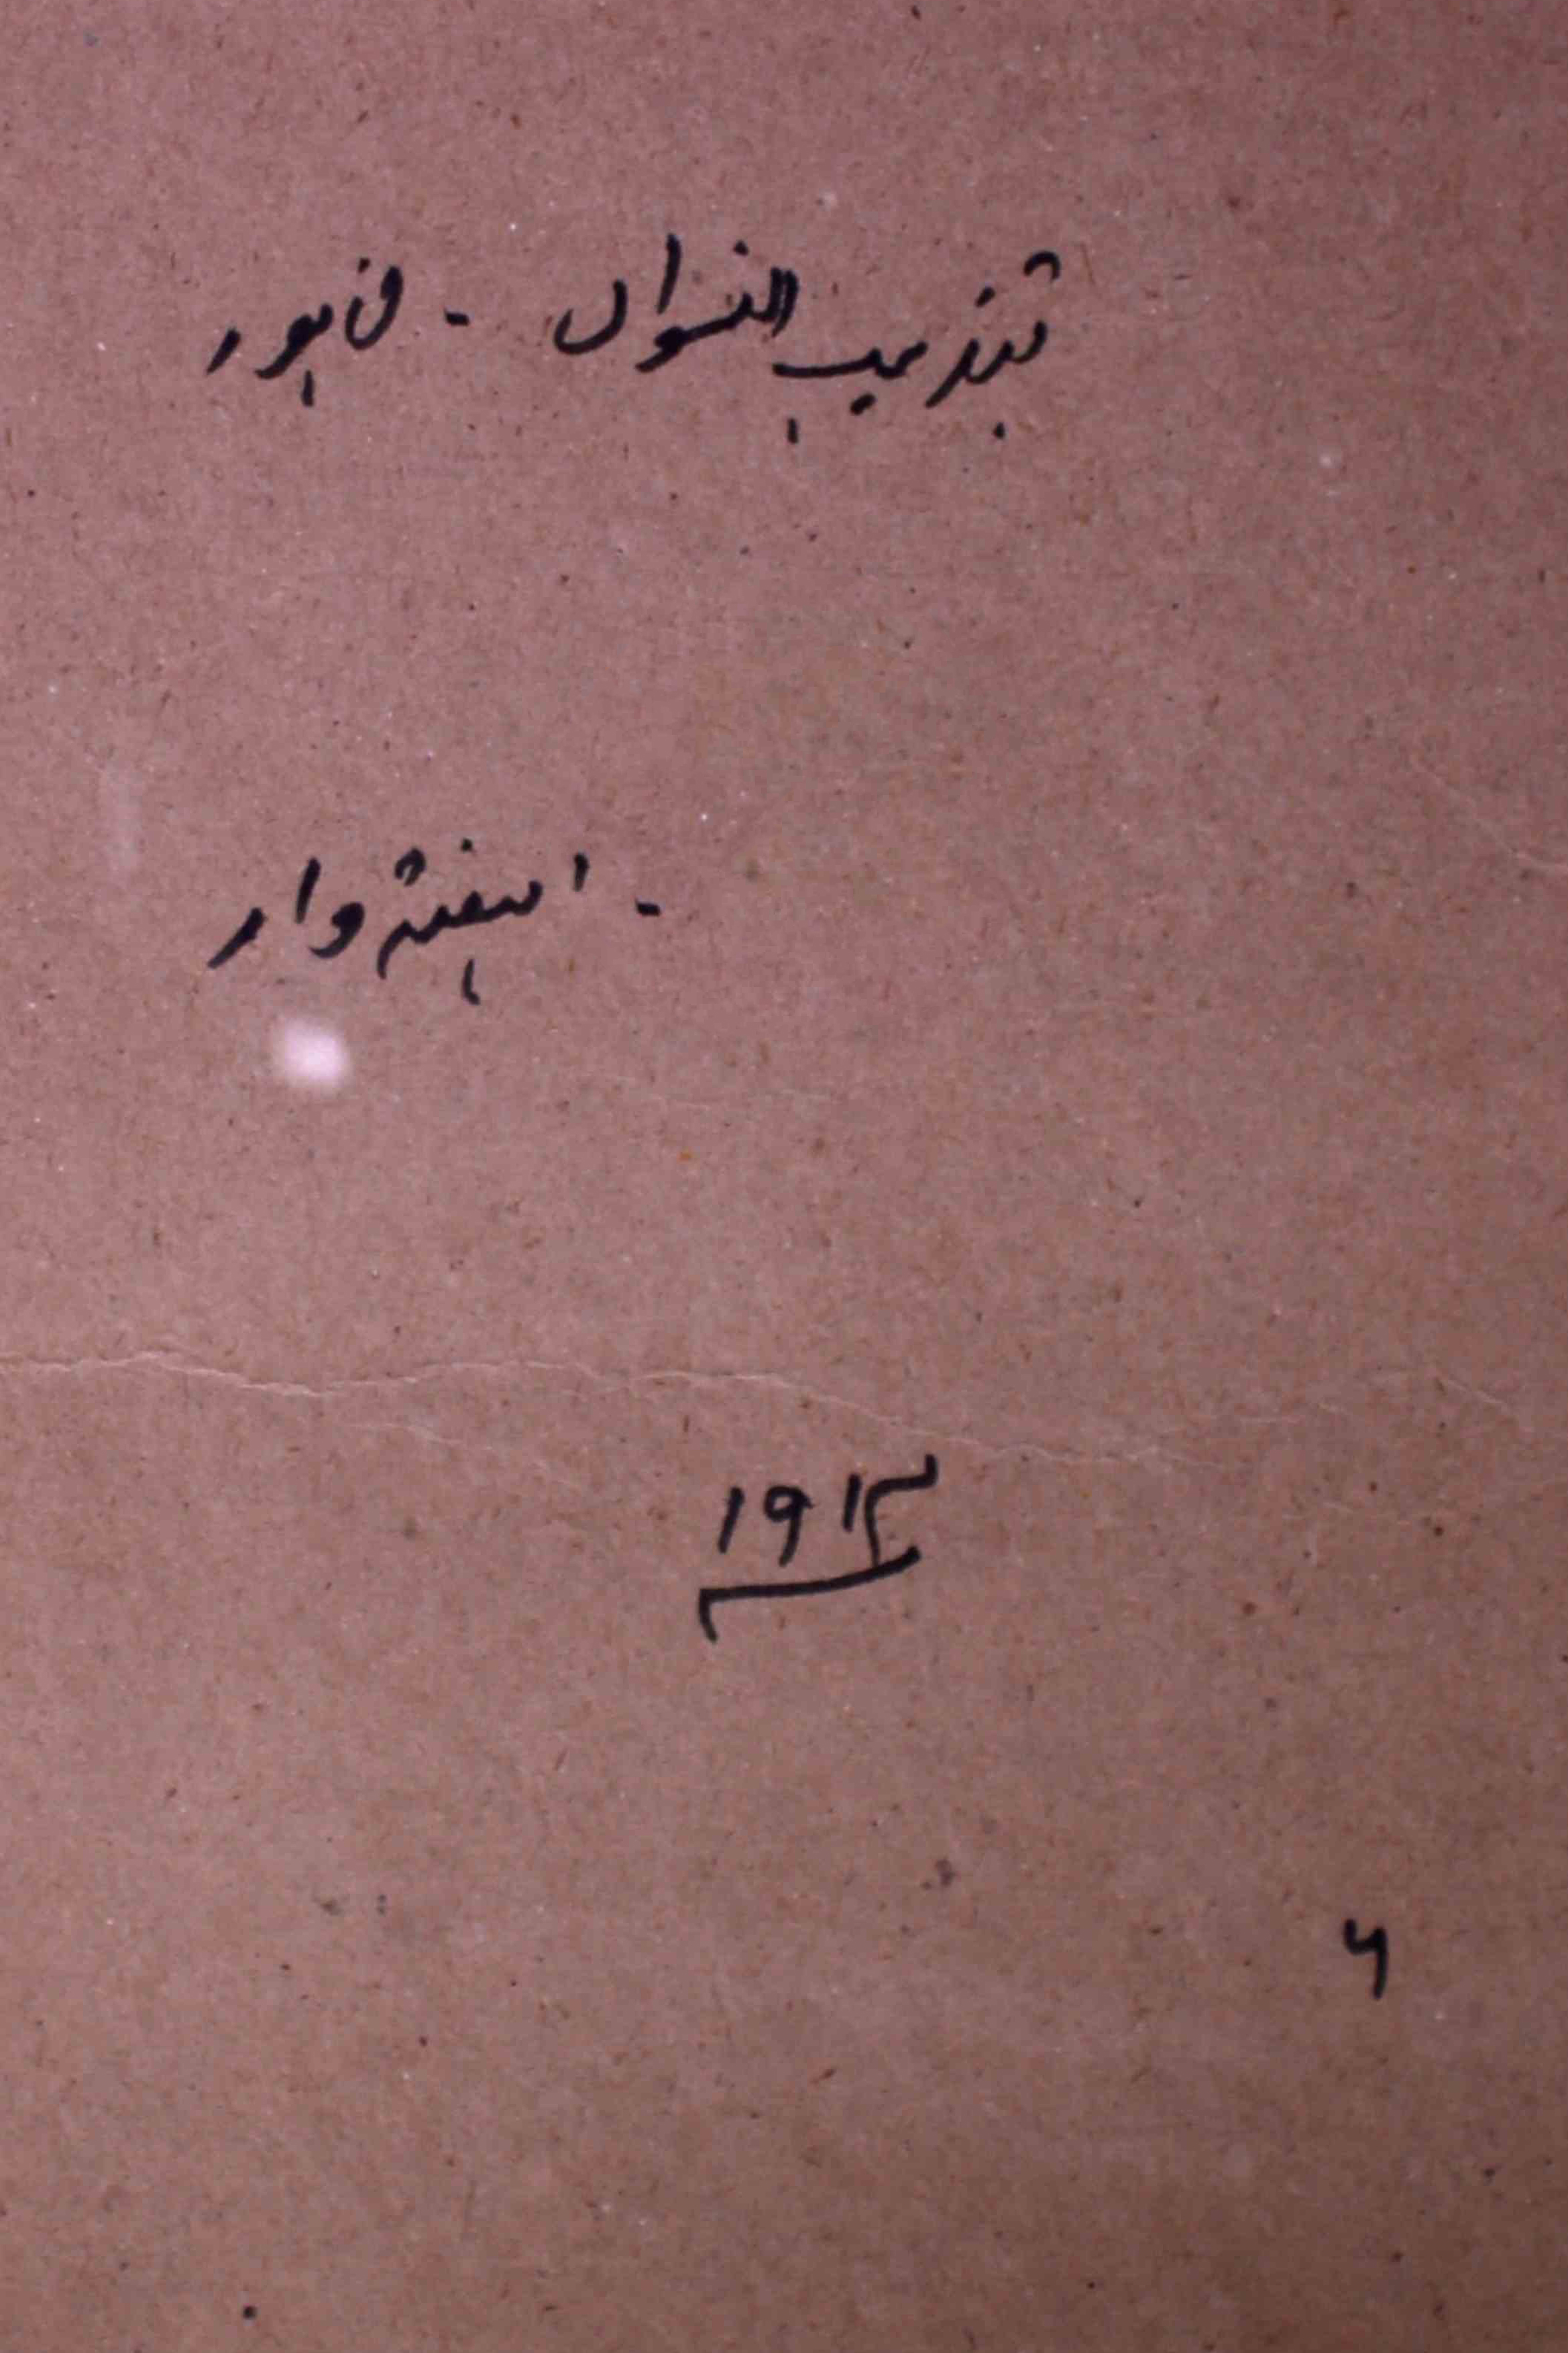 تہذیب النسواں - لاہور
- ہفتہ وار
۱۹۱۲
۶